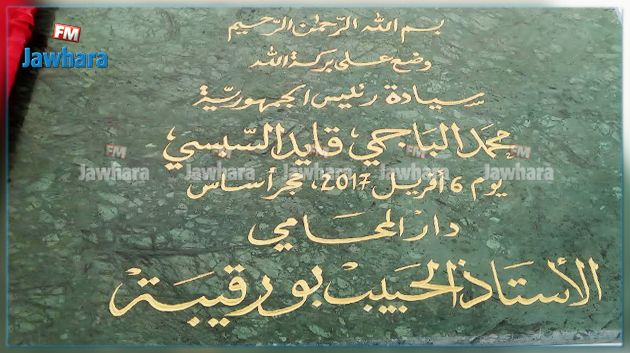 بسم الله الرحمن الرحيم
وضع على بركة الله
سيادة رئيس الجمهورية
محمد الباجي قايد السبسي
يوم 6 أفريل 2017، حجر أساس
دار المحامي
الأستاذ الحبيب بورقيبة
FM
Jawhara
FM
Jawhara
FM
Jawhara
FM
Jawhara
FM
Jawhara
FM
Jawhara